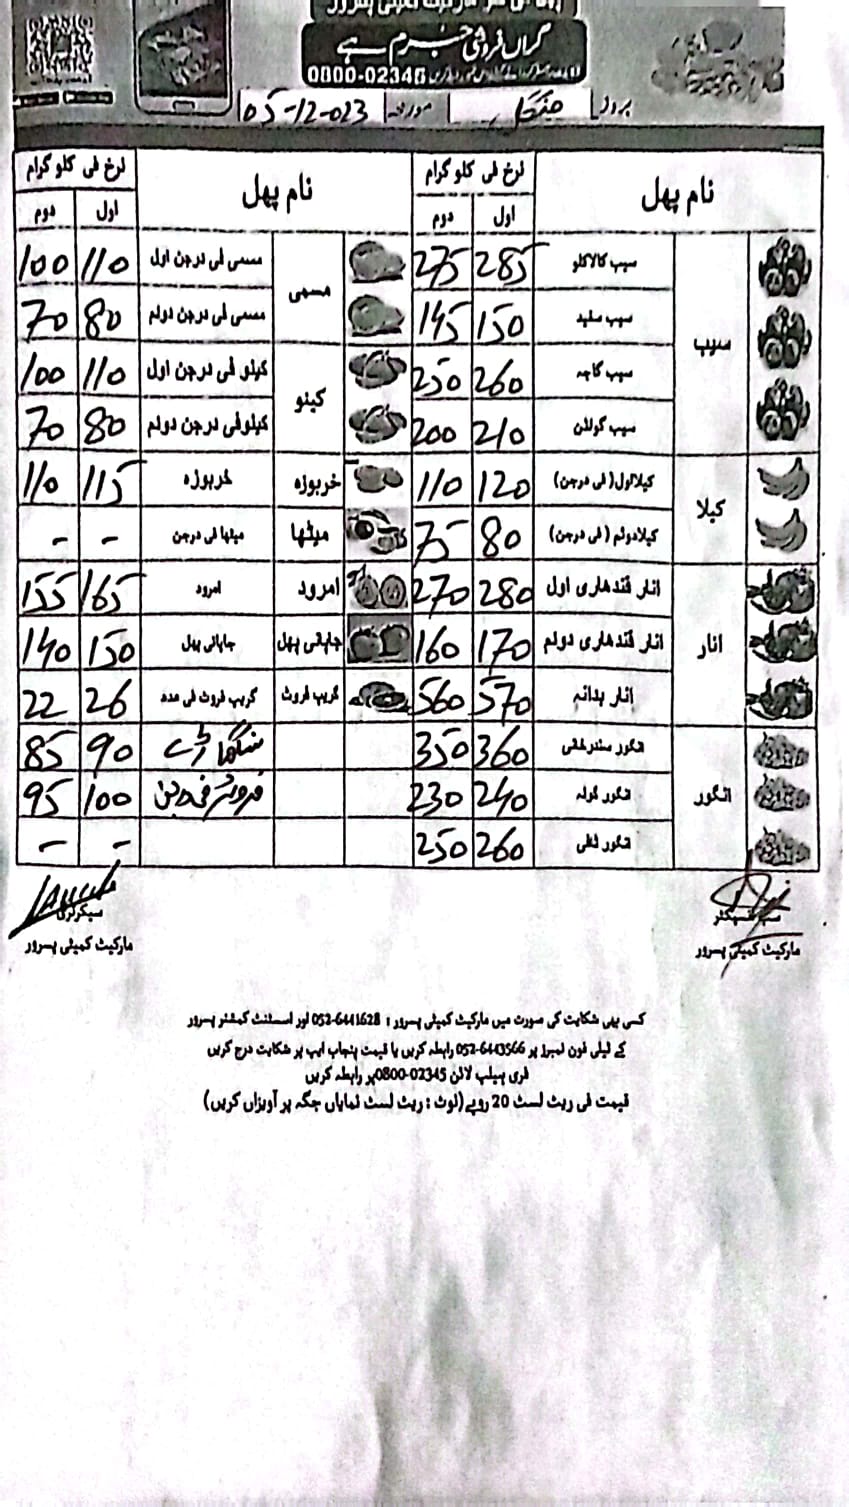 گراں فروشی جرم ہے
0800-02345
بروز منگل مورخہ 05-12-023
نام پھل نرخ فی کلو گرام نام پھل نرخ فی کلو گرام
اول دوم اول دوم
سیب سیب کالاکلو 285 275 مسمی مسمی فی درجن اول 110 100
سیب سفید 150 145 مسمی فی درجن دوئم 80 70
سیب گاچہ 260 250 کینو کینو فی درجن اول 110 100
سیب گولڈن 210 200 کینو فی درجن دوئم 80 70
کیلا کیلا اول (فی درجن) 120 110 خربوزہ خربوزہ 115 110
کیلا دوئم (فی درجن) 80 75 میٹھا میٹھا فی درجن - -
انار انار قندھاری اول 280 270 امرود امرود 165 155
انار قندھاری دوئم 170 160 جاپانی پھل جاپانی پھل 150 140
انار بدانہ 570 560 گریپ فروٹ گریپ فروٹ فی عدد 26 22
انگور انگور سندرخانی 360 350 90 85
انگور گولہ 240 230 فروٹر فی درجن 100 95
انگور ٹافی 260 250 - -
سب انسپکٹر سیکرٹری
مارکیٹ کمیٹی پسرور مارکیٹ کمیٹی پسرور
کسی بھی شکایت کی صورت میں مارکیٹ کمیٹی پسرور : 052-6441628 اور اسسٹنٹ کمشنر پسرور
کے ٹیلی فون نمبرز پر 052-6443566 رابطہ کریں یا قیمت پنجاب ایپ پر شکایت درج کریں
فری ہیلپ لائن 0800-02345 پر رابطہ کریں
قیمت فی ریٹ لسٹ 20 روپے (نوٹ : ریٹ لسٹ نمایاں جگہ پر آویزاں کریں)